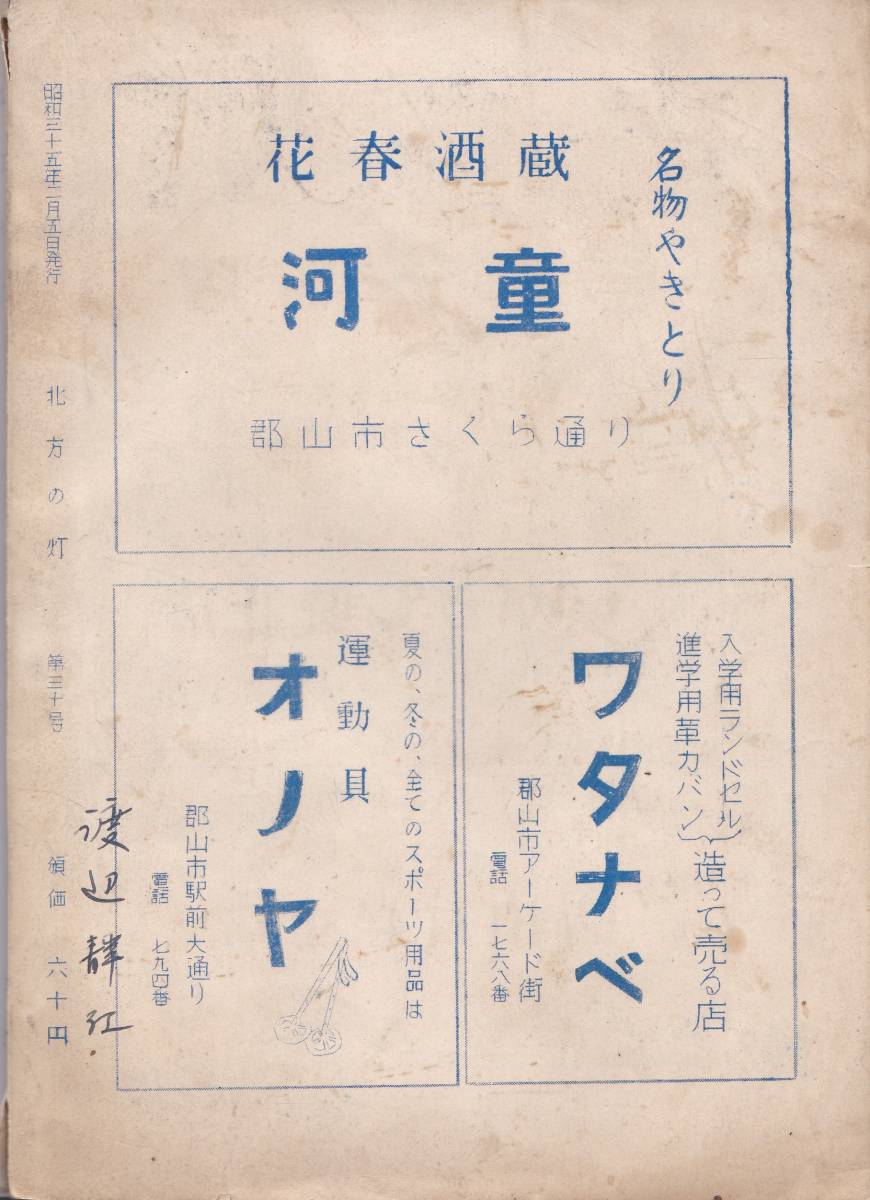 名物やきとり
花春酒蔵
河童
郡山市さくら通り
入学用ランドセル
進学用革カバン
造って売る店
ワタナベ
郡山市アーケード街
電話 一七六八番
夏の、冬の、全てのスポーツ用品は
運動具
オノヤ
郡山市駅前大通り
電話 七九四番
昭和三十五年二月五日発行 北方の灯 第三十号 頒価 六十円
渡辺